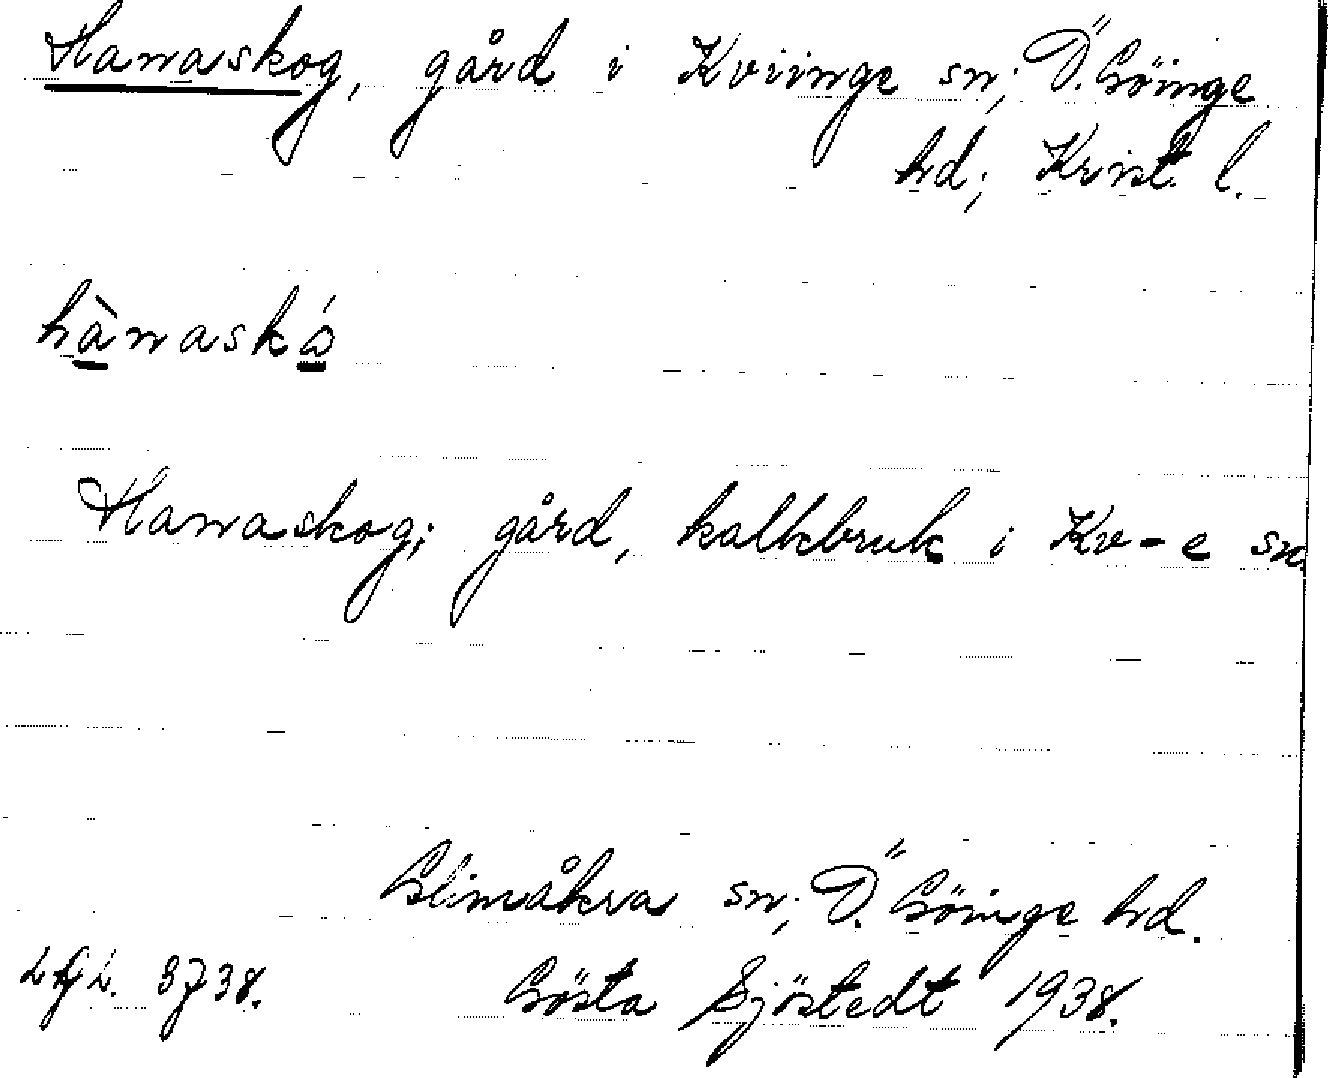 Hanaskog, gård i Kviinge sn; Ö. Göinge
hd; Krist. l.
hànaskó
Hanaskog; gård, kalkbruk i Kv-e sn.
Glimåkra sn; Ö. Göinge hd.
LGL. 3738. Gösta Sjöstedt 1938.